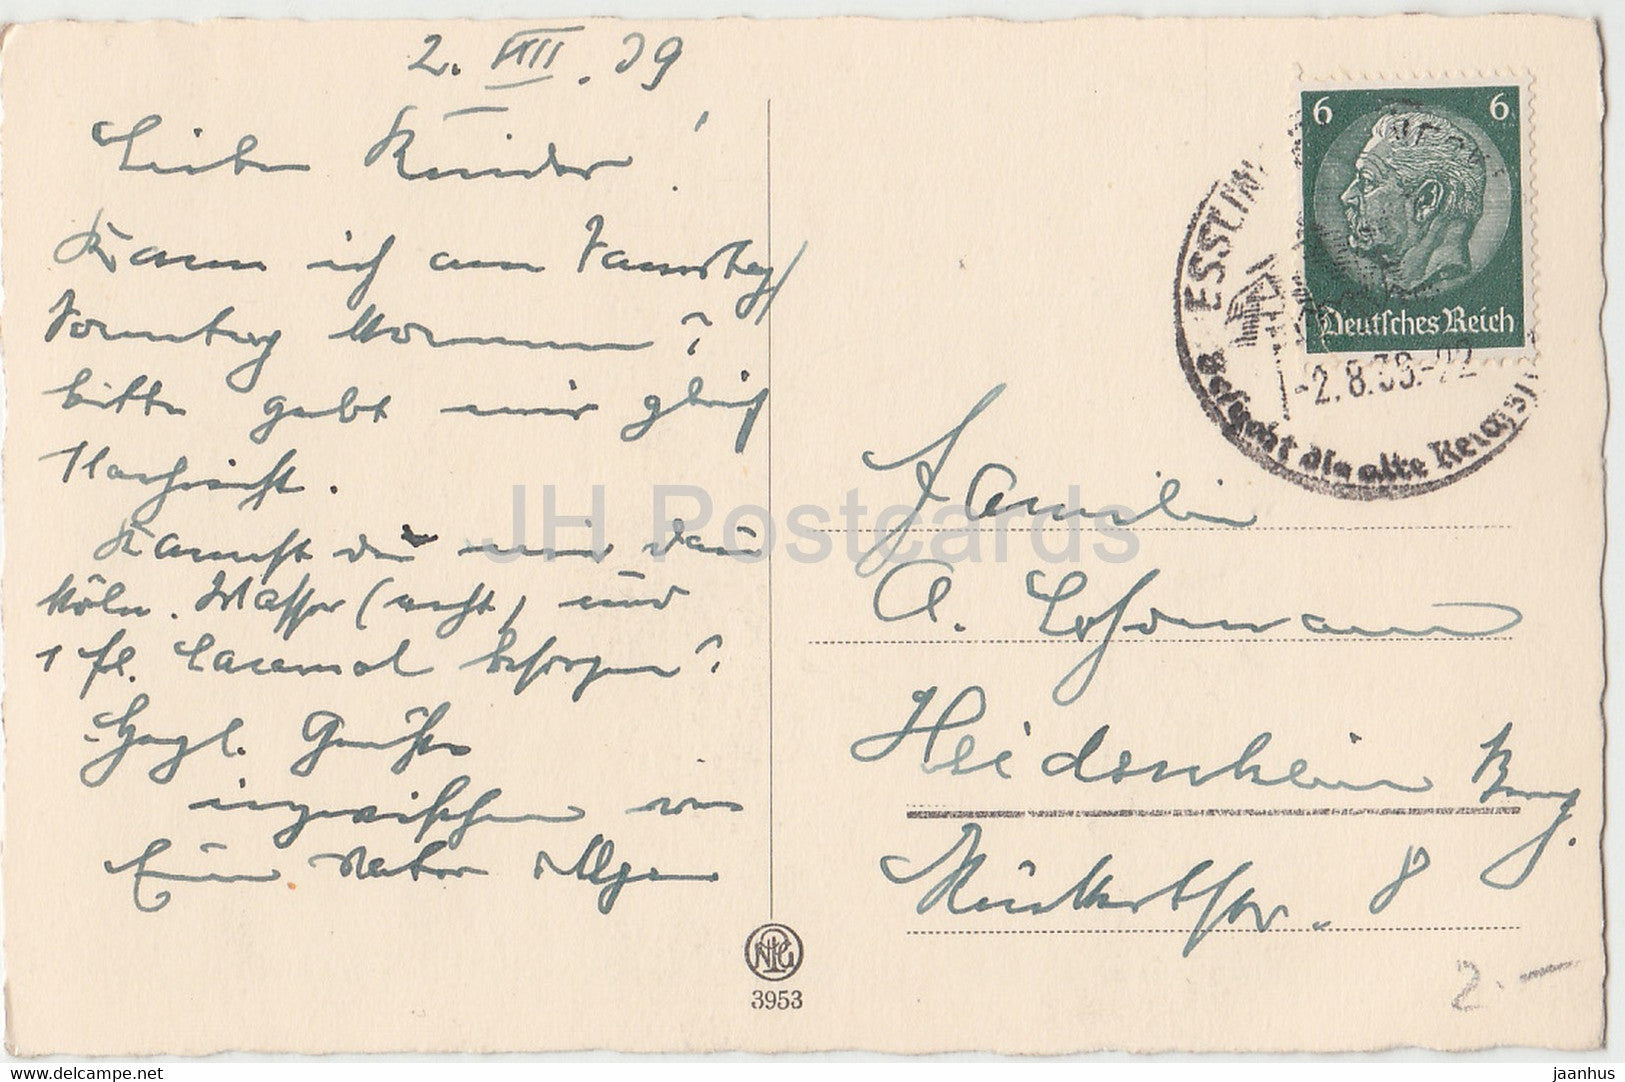 2. VIII. 39
Liebe Kinder!
Kann ich am Samstag/
Sonntag kommen?
bitte gebt mir gleich
Nachricht.
Kannst du mir dann
Köln. Wasser (echt) und
1 fl. besorgen?
Hzgl. Grüße
inzwischen von
Eurem Vater
6 6
Deutsches Reich
ESSLINGEN
-2.8.39.-22
Besucht die alte Reichsstadt
Familie
A. Lohmann
Heidenheim Brenz.
Rückertstr. 8
3953
2.-
JH Postcards
delcampe.net
jaanhus